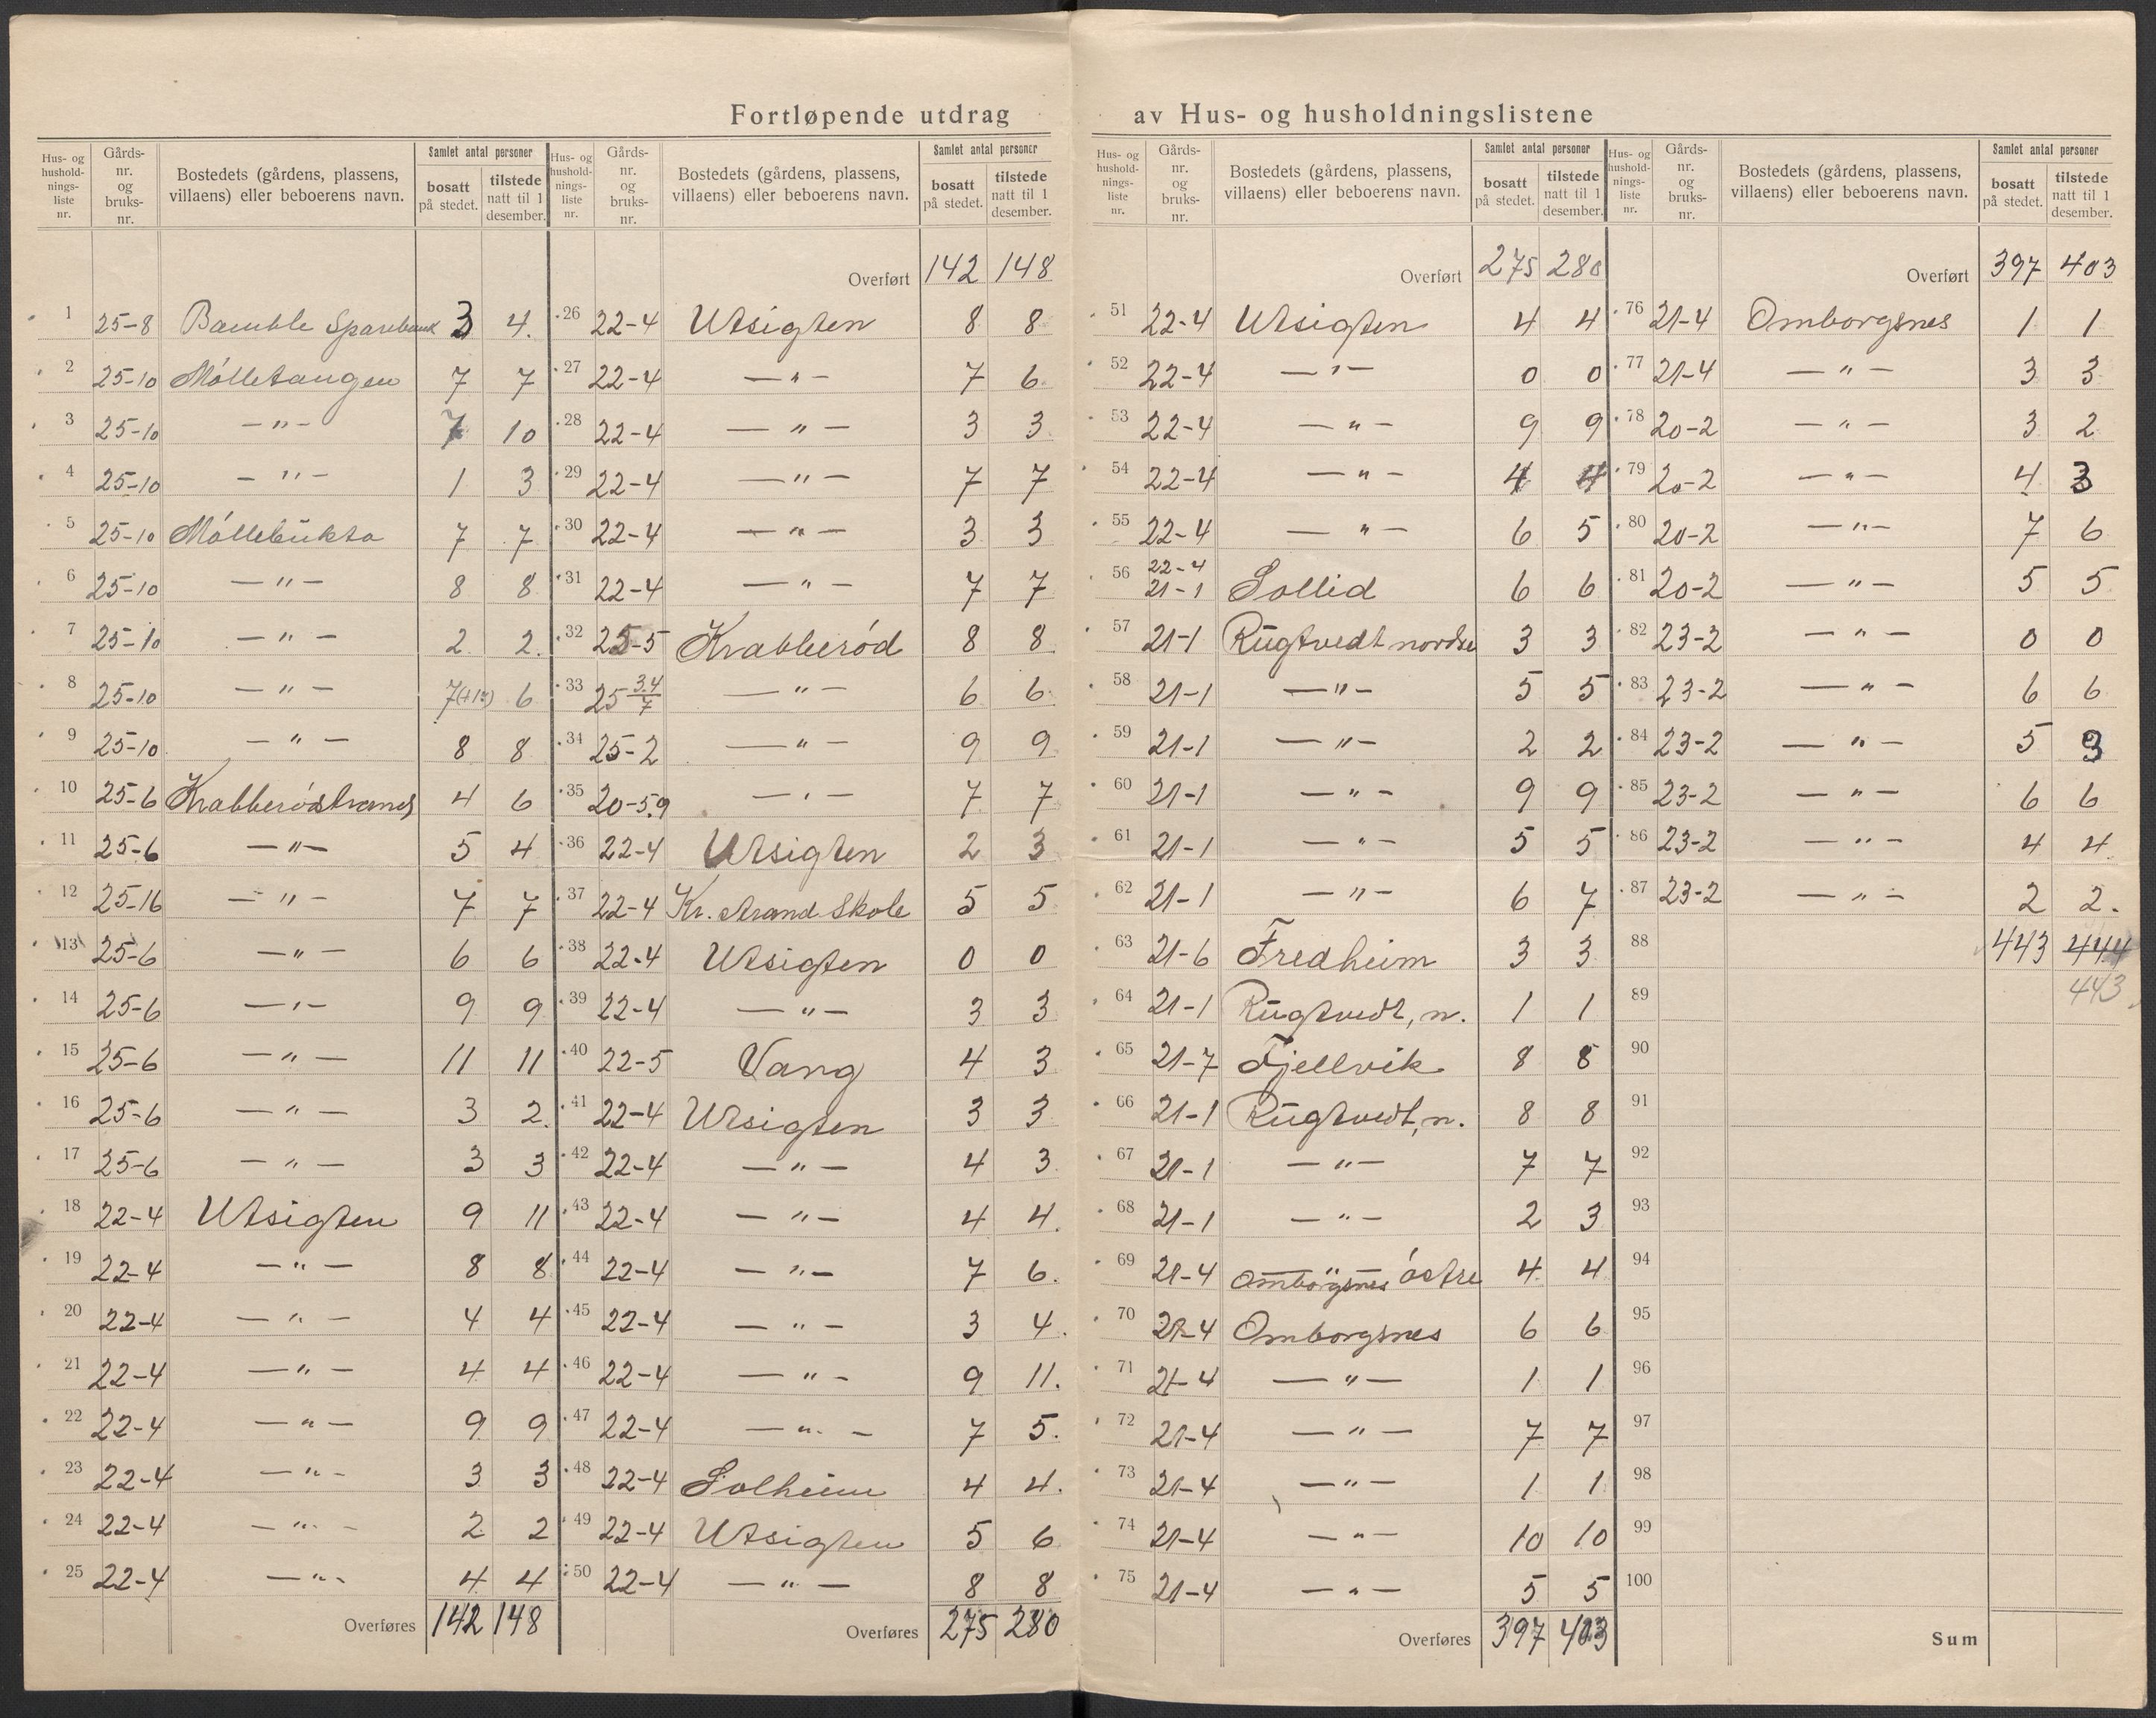 Fortløpende utdrag av Hus- og husholdningslistene
Hus- og hushold-nings-liste nr. | Gårds-nr. og bruks-nr. | Bostedets (gårdens, plassens, villaens) eller beboerens navn. | Samlet antal personer | bosatt på stedet. | tilstede natt til 1 desember.
1 25-8 Bamble Sparebank 3 4.
2 25-10 Mólletangen 7 7
3 25-10 — " — 7 10
4 25-10 — " — 1 3
5 25-10 Móllebukta 7 7
6 25-10 — " — 8 8
7 25-10 — " — 2 2.
8 25-10 — " — 7 6
9 25-10 — " — 8 8
10 25-6 Krabberódstrand 4 6
11 25-6 — " — 5 4
12 25-16 — " — 7 7
13 25-6 — " — 6 6
14 25-6 — " — 9 9
15 25-6 — " — 11 11
16 25-6 — " — 3 2.
17 25-6 — " — 3 3
18 22-4 Utsigten 9 11
19 22-4 — " — 8 8
20 22-4 — " — 4 4
21 22-4 — " — 4 4
22 22-4 — " — 9 9
23 22-4 — " — 3 3
24 22-4 — " — 2 2
25 22-4 — " — 4 4
Overføres 142 148
Hus- og hushold-nings-liste nr. | Gårds-nr. og bruks-nr. | Bostedets (gårdens, plassens, villaens) eller beboerens navn. | Samlet antal personer | bosatt på stedet. | tilstede natt til 1 desember.
Overført 142 148
26 22-4 Utsigten 8 8
27 22-4 — " — 7 6
28 22-4 — " — 3 3
29 22-4 — " — 7 7
30 22-4 — " — 3 3
31 22-4 — " — 7 7
32 25-5 Krabberód 8 8
33 25 3.4/7 — " — 6 6
34 25-2 — " — 9 9
35 20-5.9 — " — 7 7
36 22-4 Utsigten 2 3
37 22-4 Kr. strand Skole 5 5
38 22-4 Utsigten 0 0
39 22-4 — " — 3 3
40 22-5 Vang 4 3
41 22-4 Utsigten 3 3
42 22-4 — " — 4 3
43 22-4 — " — 4 4.
44 22-4 — " — 7 6.
45 22-4 — " — 3 4.
46 22-4 — " — 9 11.
47 22-4 — " — 7 5.
48 22-4 Solheim 4 4.
49 22-4 Utsigten 5 6
50 22-4 — " — 8 8
Overføres 275 280
Hus- og hushold-nings-liste nr. | Gårds-nr. og bruks-nr. | Bostedets (gårdens, plassens, villaens) eller beboerens navn. | Samlet antal personer | bosatt på stedet. | tilstede natt til 1 desember.
Overført 275 280
51 22-4 Utsigten 4 4
52 22-4 — " — 0 0
53 22-4 — " — 9 9
54 22-4 — " — 4 4
55 22-4 — " — 6 5
56 22-4 21-1 Sollid 6 6
57 21-1 Rugtvedt nordre 3 3
58 21-1 — " — 5 5
59 21-1 — " — 2 2
60 21-1 — " — 9 9
61 21-1 — " — 5 5
62 21-1 — " — 6 7
63 21-6 Fredheim 3 3
64 21-1 Rugtvedt, n. 1 1
65 21-7 Fjellvik 8 8
66 21-1 Rugtvedt, n. 8 8
67 21-1 — " — 7 7
68 21-1 — " — 2 3
69 21-4 — " — Omborgsnes óstre 4 4
70 21-4 Omborgsnes 6 6
71 21-4 — " — 1 1
72 21-4 — " — 7 7
73 21-4 — " — 1 1
74 21-4 — " — 10 10
75 21-4 — " — 5 5
Overføres 397 403
Hus- og hushold-nings-liste nr. | Gårds-nr. og bruks-nr. | Bostedets (gårdens, plassens, villaens) eller beboerens navn. | Samlet antal personer | bosatt på stedet. | tilstede natt til 1 desember.
Overført 397 403
76 21-4 Omborgsnes 1 1
77 21-4 — " — 3 3
78 20-2 — " — 3 2
79 20-2 — " — 4 3
80 20-2 — " — 7 6
81 20-2 — " — 5 5
82 23-2 — " — 0 0
83 23-2 — " — 6 6
84 23-2 — " — 5 3
85 23-2 — " — 6 6
86 23-2 — " — 4 4
87 23-2 — " — 2 2.
88 443 444
89 443
90
91
92
93
94
95
96
97
98
99
100
Sum